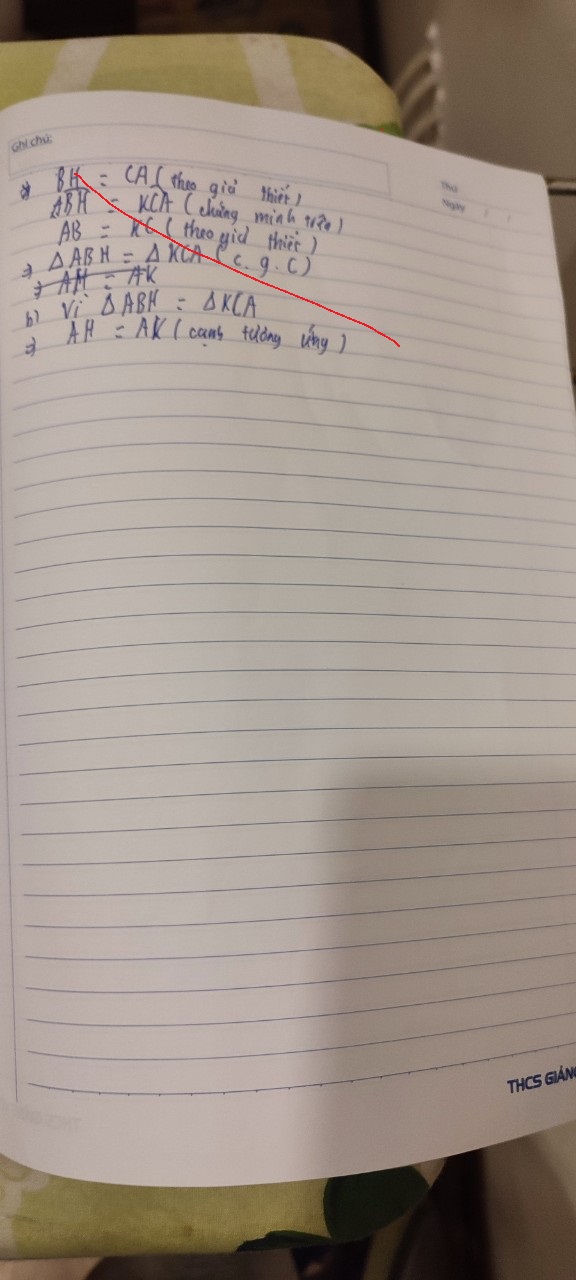 Ghi chú:
Thứ
Ngày / /
⇒) BH = CA ( theo giả thiết)
ABH = KCA ( chứng minh trên)
AB = KC ( theo giả thiết)
⇒ Δ ABH = Δ KCA ( c.g.c)
⇒ AH = AK
b) Vì Δ ABH = Δ KCA
⇒ AH = AK ( cạnh tương ứng)
THCS GIẢNG